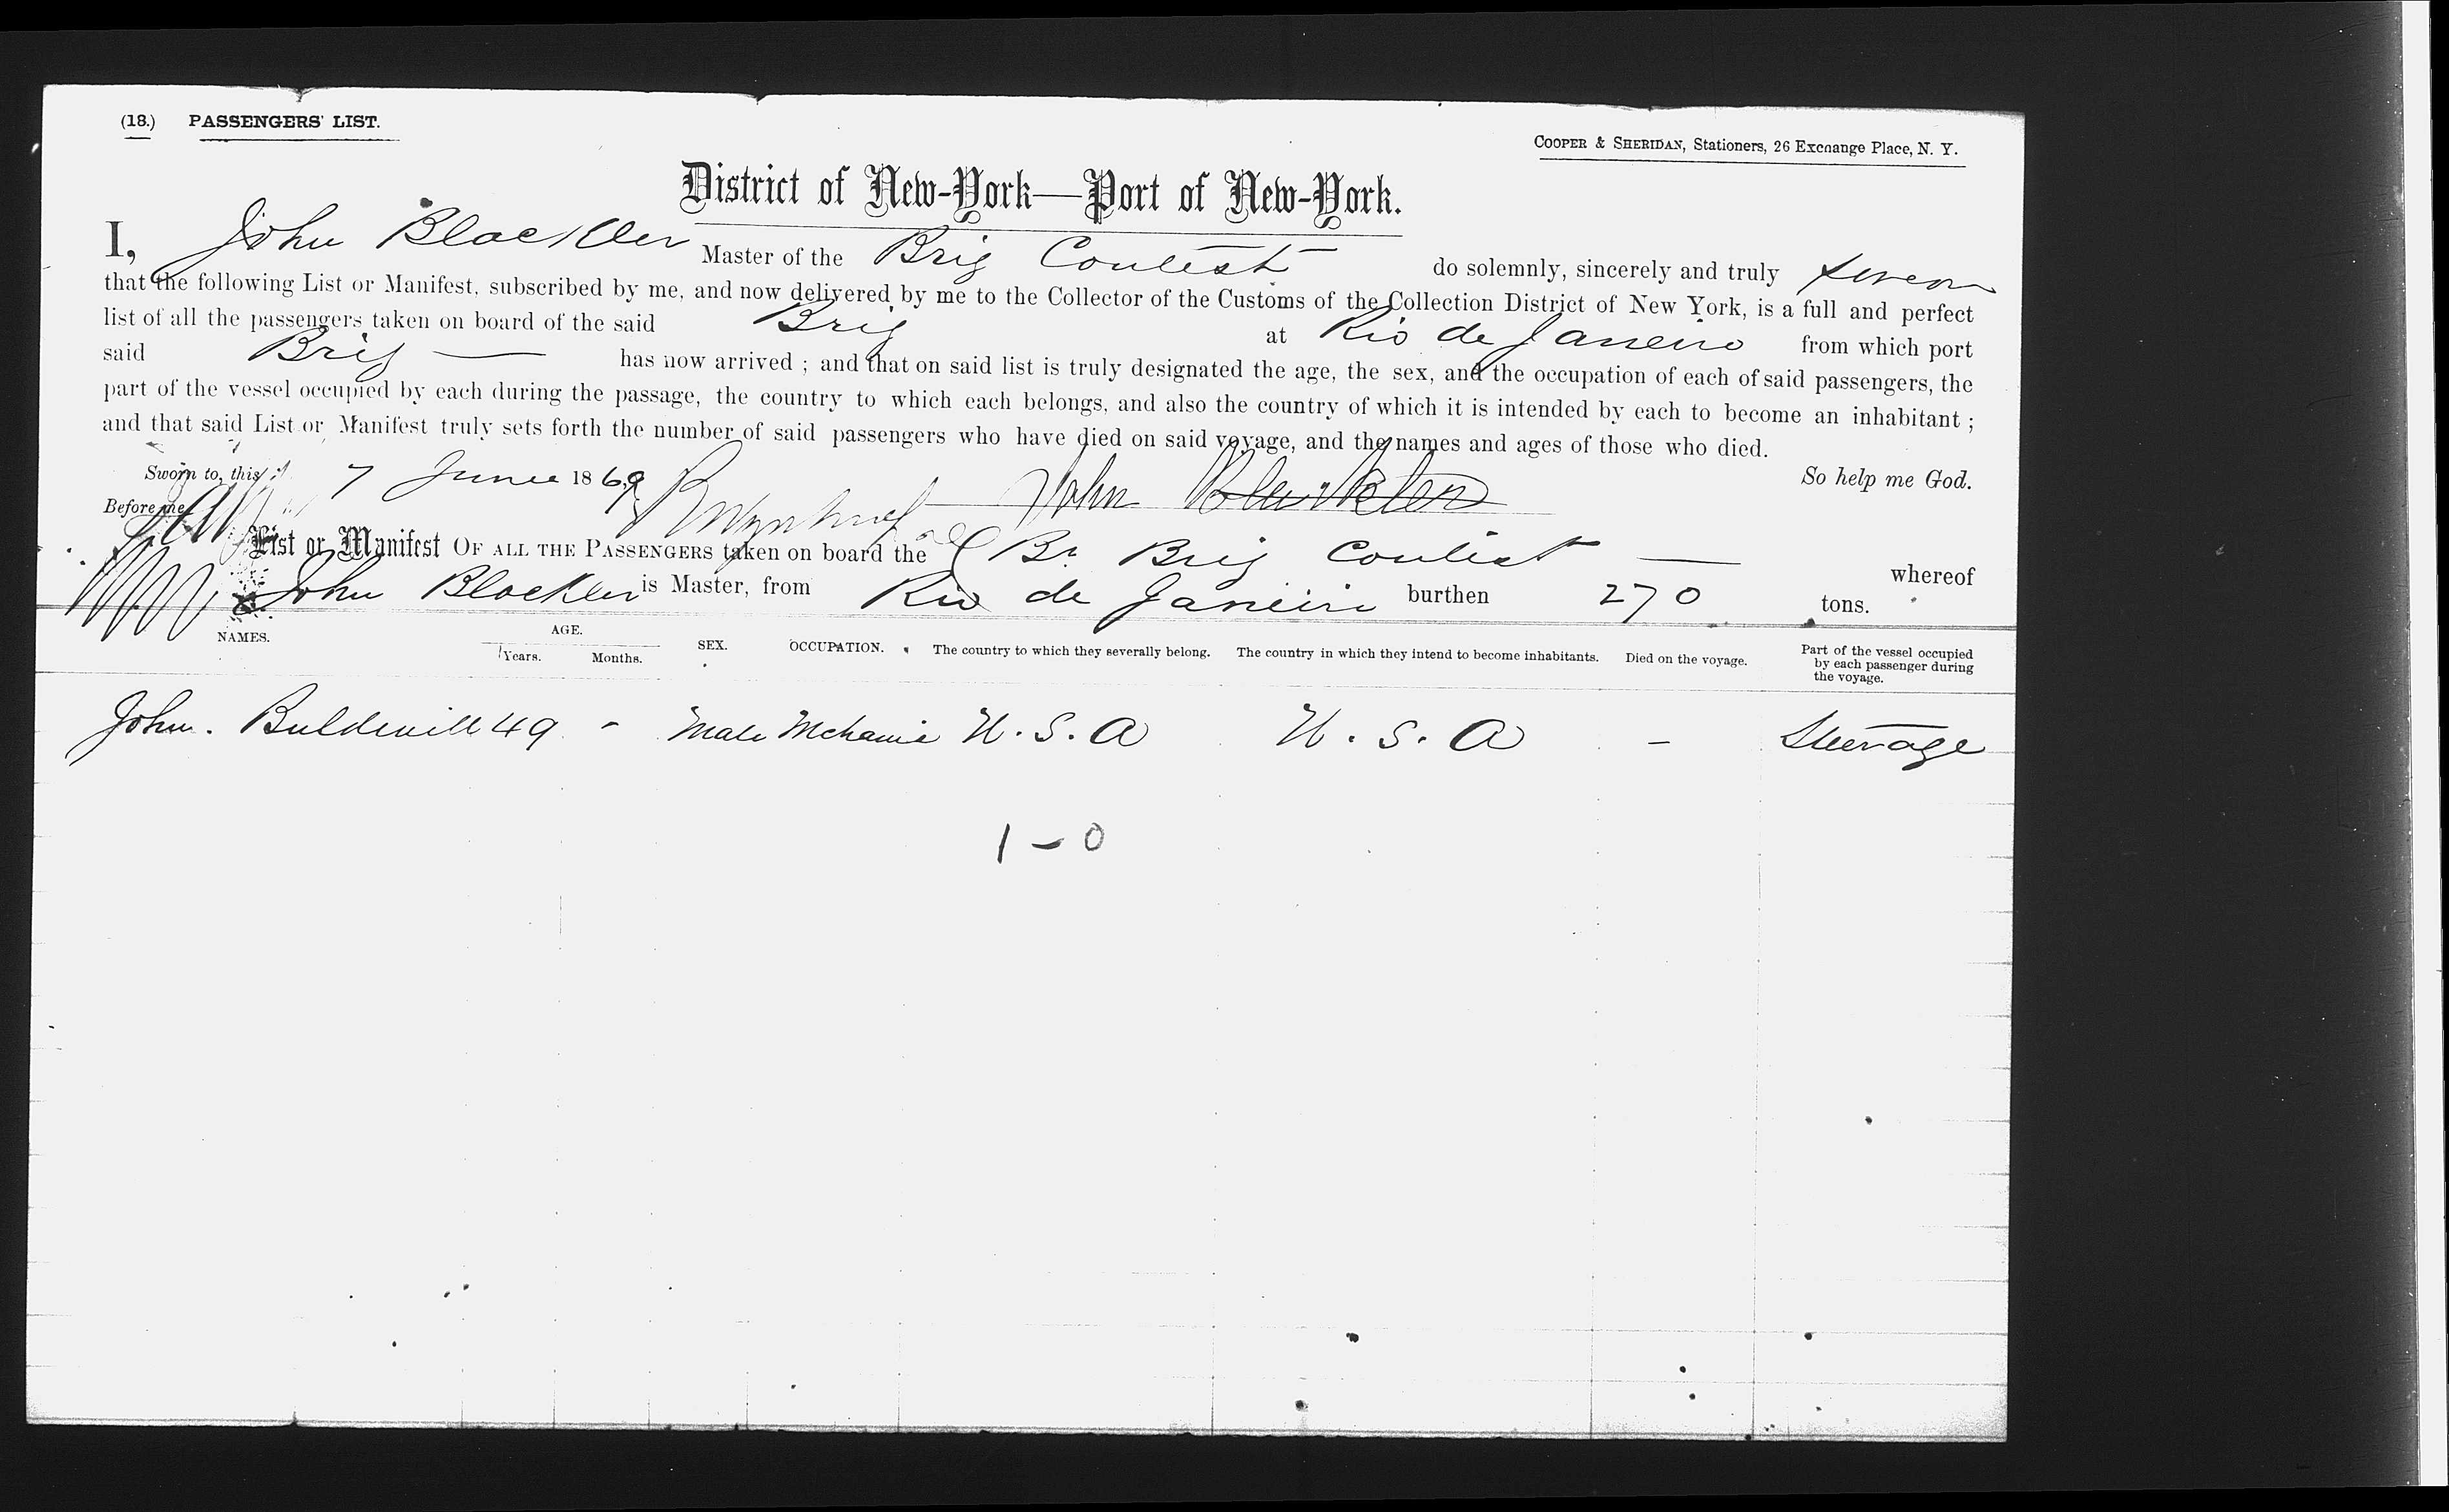 (18.) PASSENGERS' LIST.
COOPER & SHERIDAN, Stationers, 26 Exchange Place, N. Y.
District of New-York—Port of New-York.
I, John Blackler Master of the Brig Contest do solemnly, sincerely and truly swear
that the following List or Manifest, subscribed by me, and now delivered by me to the Collector of the Customs of the Collection District of New York, is a full and perfect
list of all the passengers taken on board of the said Brig at Rio de Janeiro from which port
said Brig has now arrived ; and that on said list is truly designated the age, the sex, and the occupation of each of said passengers, the
part of the vessel occupied by each during the passage, the country to which each belongs, and also the country of which it is intended by each to become an inhabitant ;
and that said List or Manifest truly sets forth the number of said passengers who have died on said voyage, and the names and ages of those who died.
So help me God.
Sworn to, this 7 June 1869 John Blackler
Before me
List or Manifest OF ALL THE PASSENGERS taken on board the Br Brig Contest whereof
John Blackler is Master, from Rio de Janeiro burthen 270 tons.
NAMES. AGE. Years. Months. SEX. OCCUPATION. The country to which they severally belong. The country in which they intend to become inhabitants. Died on the voyage. Part of the vessel occupied by each passenger during the voyage.
John. 49 - Male Mchanic U.S.A U.S.A - Steerage
1 - 0